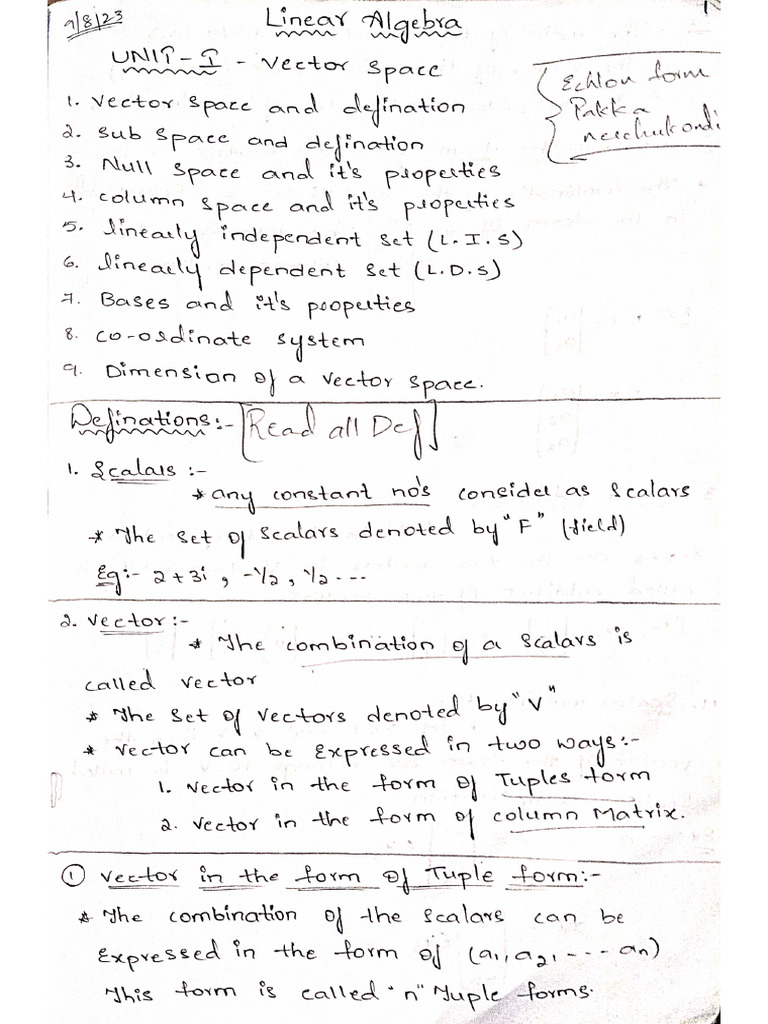 9/8/23
Linear Algebra
1
UNIT-I - Vector Space
Echlon form
Pakka
neschukondi
1. Vector Space and defination
2. Sub Space and defination
3. Null Space and it's properties
4. Column Space and it's properties
5. linearly independent Set (L.I.S)
6. linearly dependent Set (L.D.S)
7. Bases and it's poopeties
8. co-ordinate system
9. Dimension of a vector space.
Definations:- [Read all Def].
1. Scalars :-
* any constant no's consider as Scalars
* The set of scalars denoted by "F" (field)
Eg:- 2+3i, -1/2, 1/2 ---
2. Vector:-
* The combination of a scalars is
called vector
* The set of vectors denoted by "V"
* vector can be Expressed in two ways:-
1. vector in the form of Tuples form
2. vector in the form of column Matrix.
① vector in the form of Tuple form:-
* The combination of the scalars can be
Expressed in the form of (a1, a2, --- an)
This form is called "n" Tuple forms.